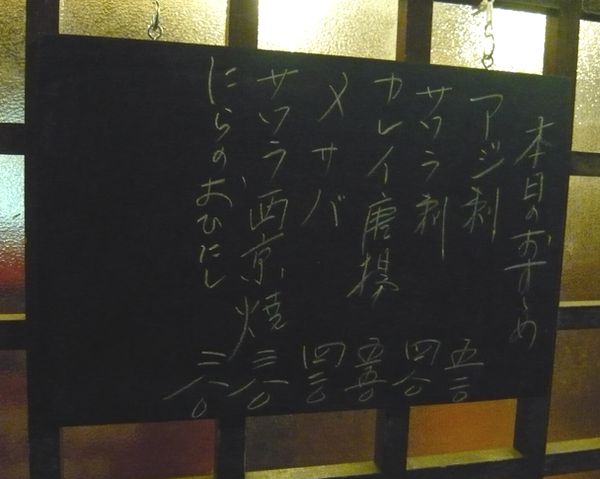 本日のおすすめ
アジ刺
サワラ刺 四八〇
カレイ唐揚 五五〇
〆サバ 四三〇
サワラ西京焼 三八〇
にらのおひたし 三八〇